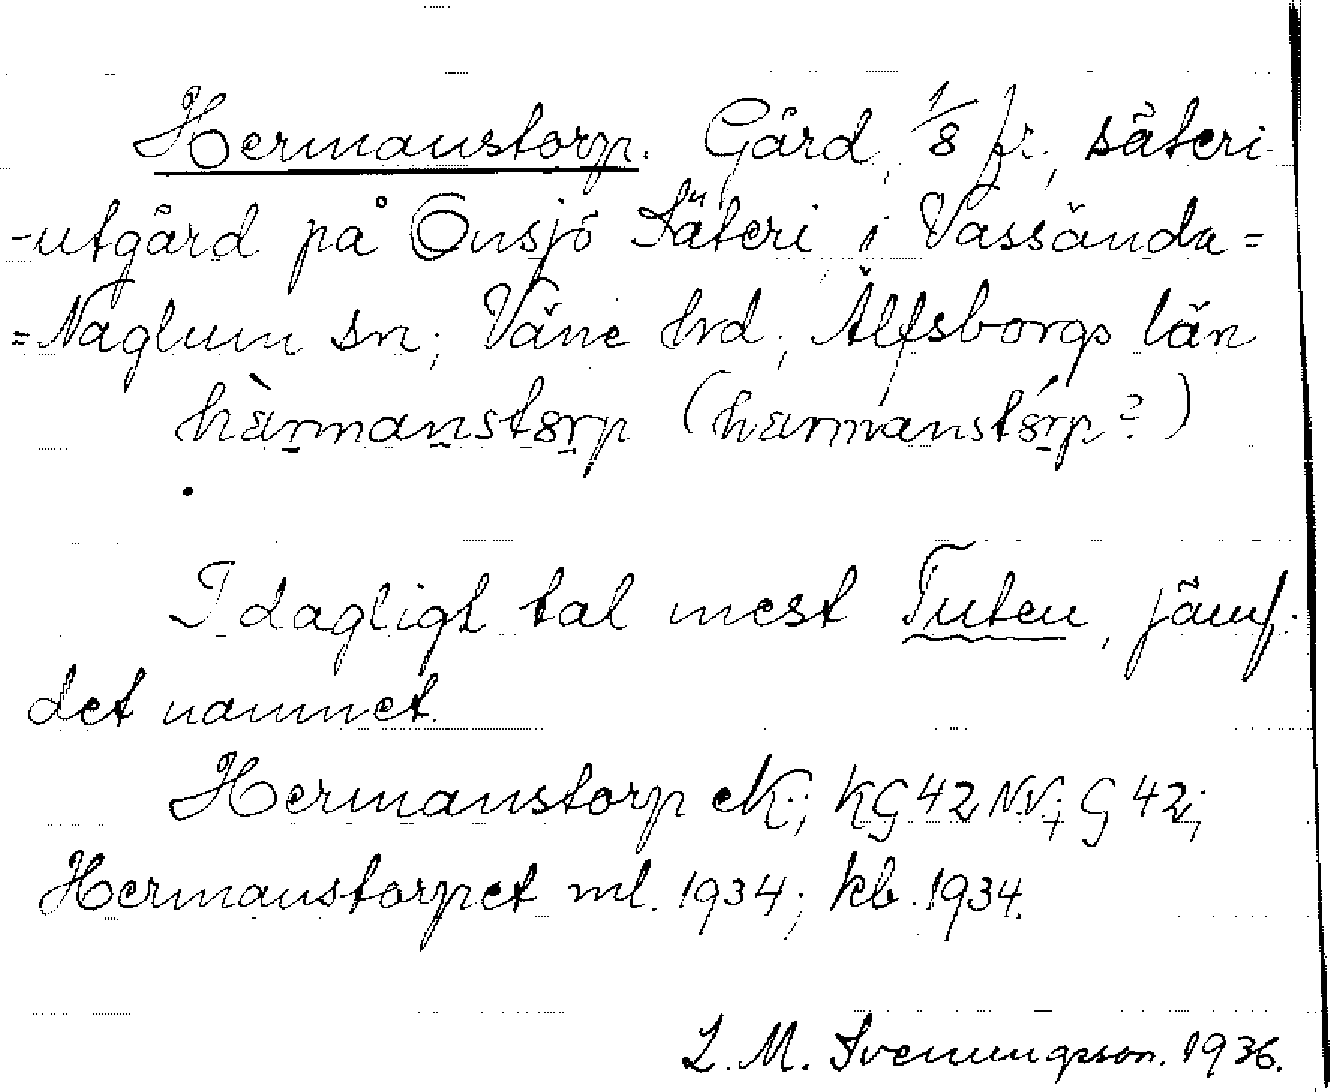 Hermanstorp. Gård, 1/8 fr., säteri-
-utgård på Önsjö Säteri, i Vassända=
=Naglum sn; Väne hrd; Älfsborgs län
hærmanstørp (hærmanstørp?)
I dagligt tal mest Tuten, jämf.
det namnet.
Hermanstorp eK; KG 42 NV; G 42;
Hermanstorpet ml. 1934; kb. 1934.
L. M. Svenungsson. 1936.